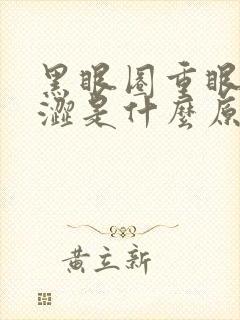 黑眼圈重眼
澀是什麼原
黃立新